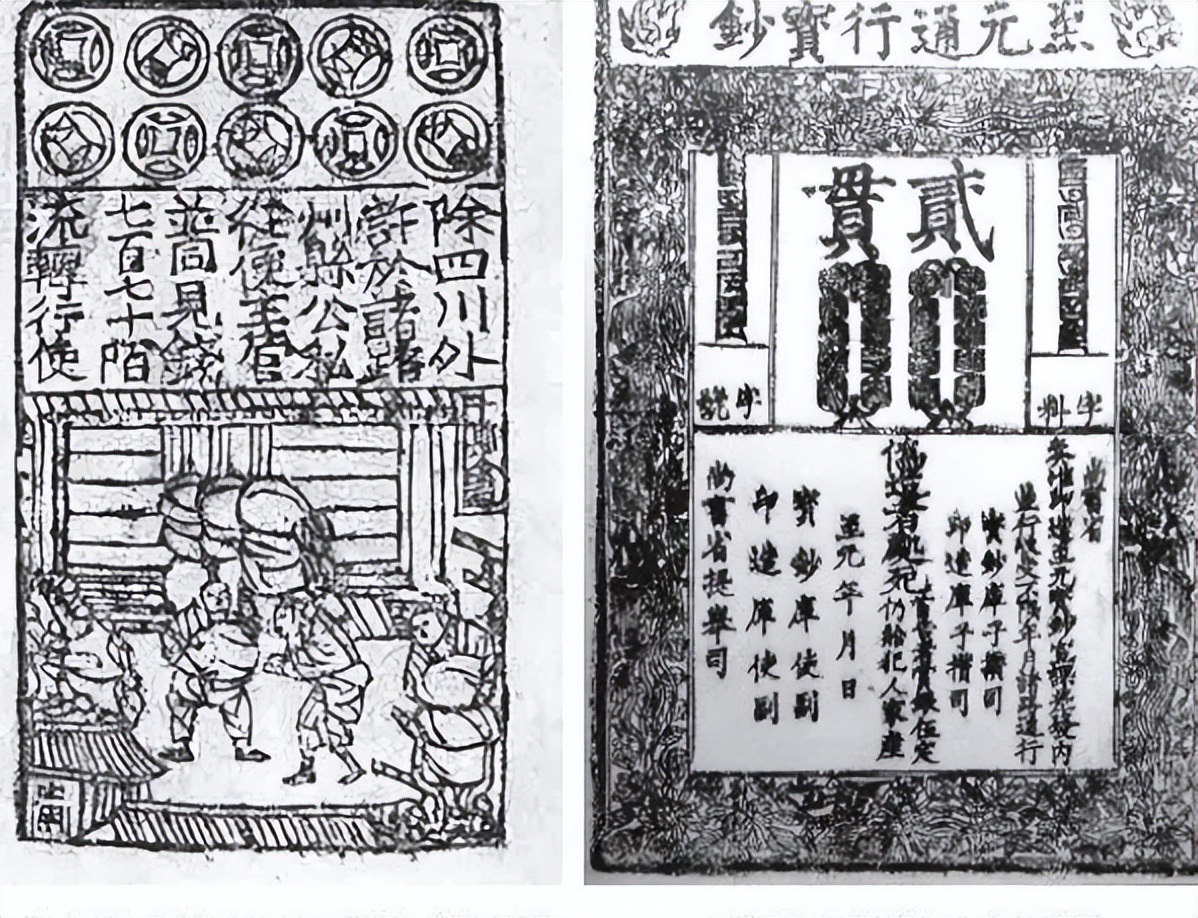 除四川外
許於諸路
州縣公私
從便主管
並同見錢
七百七十陌
流轉行使
至元通行寶鈔
貳貫
字料
字號
尚書省
奏准印造至元寶鈔宣課差役內
並行收受不限年月諸路通行
寶鈔庫子攢司
印造庫子攢司
偽造者處死首告者賞銀伍定
仍給犯人家產
至元年月日
寶鈔庫使副
印造庫使副
尚書省提舉司